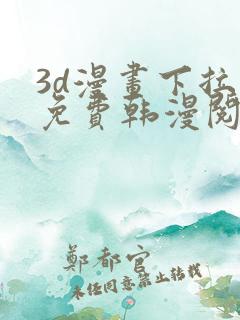 3d漫畫下拉
免費韩漫閱
鄭都官
未任同意禁止轉載